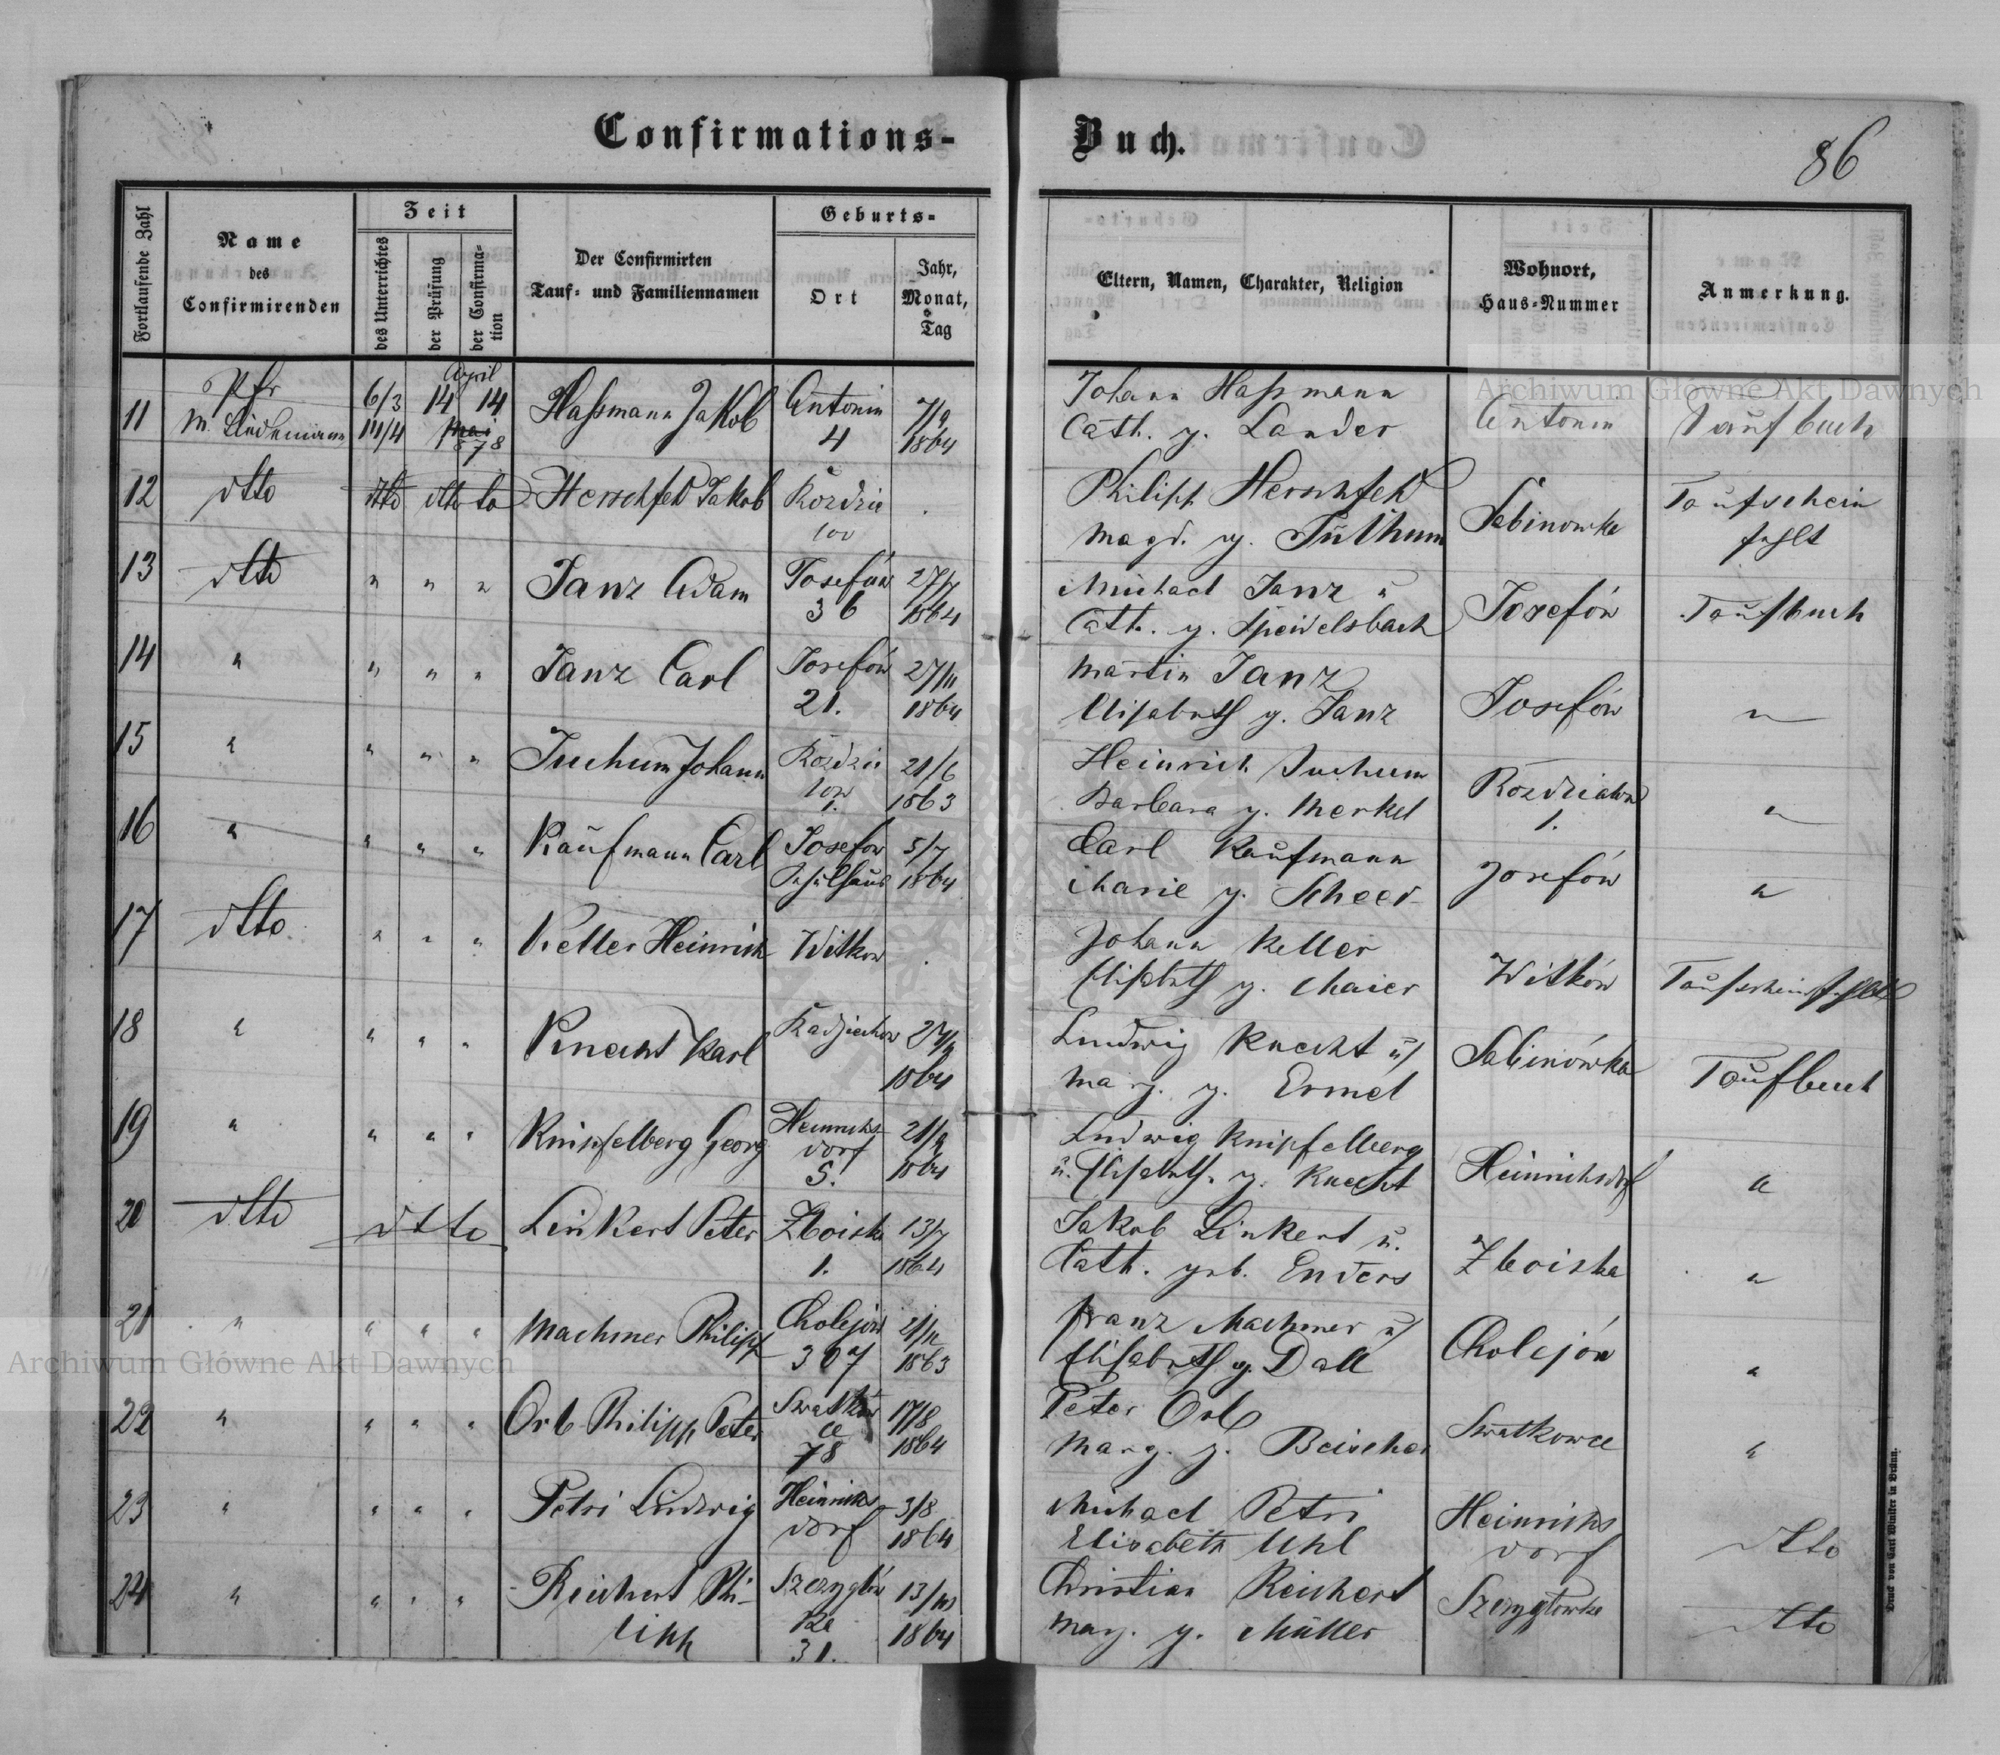 Confirmations-
Buch.
86
Fortlaufende Zahl
Name
des
Confirmirenden
Zeit
des Unterrichtes
der Prüfung
der Confirma-
tion
Der Confirmirten
Tauf- und Familiennamen
Geburts-
Ort
Jahr,
Monat,
Tag
Eltern, Namen, Charakter, Religion
Wohnort,
Haus-Nummer
Anmerkung.
11 Pfr 6/3 14 April 14 Haßmann Jakob Antonin 7/9 Johann Haßmann Antonin Taufbuch
14/4 Mai 1878 4 1864 Cath. g. Lander
12 dtto dtto dtto to Herschfeld Jakob Rozdzia Philipp Herschfeld Sabinowka Taufschein
low Magd. g. Juchum fehlt
13 dtto " " " Janz Adam Josefów 27/7 Michael Janz u Josefów Taufbuch
36 1864 Cath. g. Speidelsbach
14 " " " " Janz Carl Josefów 27/11 Martin Janz Josefów "
21. 1864 Elisabeth g. Janz
15 " " " " Juchum Johann Rozdzia 21/6 Heinrich Juchum Rozdzialow "
low 1. 1863 Barbara g. Merkel 1.
16 " " " " Kaufmann Carl Josefow 5/7 Carl Kaufmann Josefów "
Schulhaus 1864 Marie g. Scheer
17 dtto " " " Keller Heinrich Witkow Johann Keller Witków Taufschein fehlt
Elisabeth g. Maier
18 " " " " Knecht Karl Radziechow Ludwig Knecht u/ Sabinówka Taufbuch
1864 Marg. g. Ermel
19 " " " " Knipfelberg Georg Heinrichs- 21/9 Ludwig Knipfelberg Heinrichsdorf "
dorf 5. 1864 u. Elisabeth. g. Knecht
20 dtto dtto Linkert Peter Zboiska 13/7 Jakob Linkert u. Zboiska "
1. 1864 Cath. geb. Enders
21 " " " " Machmer Philipp Cholejów 21/11 Franz Machmer u/ Cholejów "
307 1863 Elisabeth g. Dall
22 " " " " Orb Philipp Peter Smatkow 17/8 Peter Orb Smatkowce "
ce 78 1864 Marg. g. Beischer
23 " " " " Petri Ludwig Heinrichs- 3/8 Michael Petri Heinrichs dtto
dorf 1864 Elisabeth Uhl dorf
24 " " " " Reichert Phi- Szczyglów 13/10 Christian Reichert Szczyglowka dtto
lipp ka 31. 1864 Marg. g. Müller
Druck von Carl Winiker in Brünn.
Archiwum Główne Akt Dawnych
Archiwum Główne Akt Dawnych